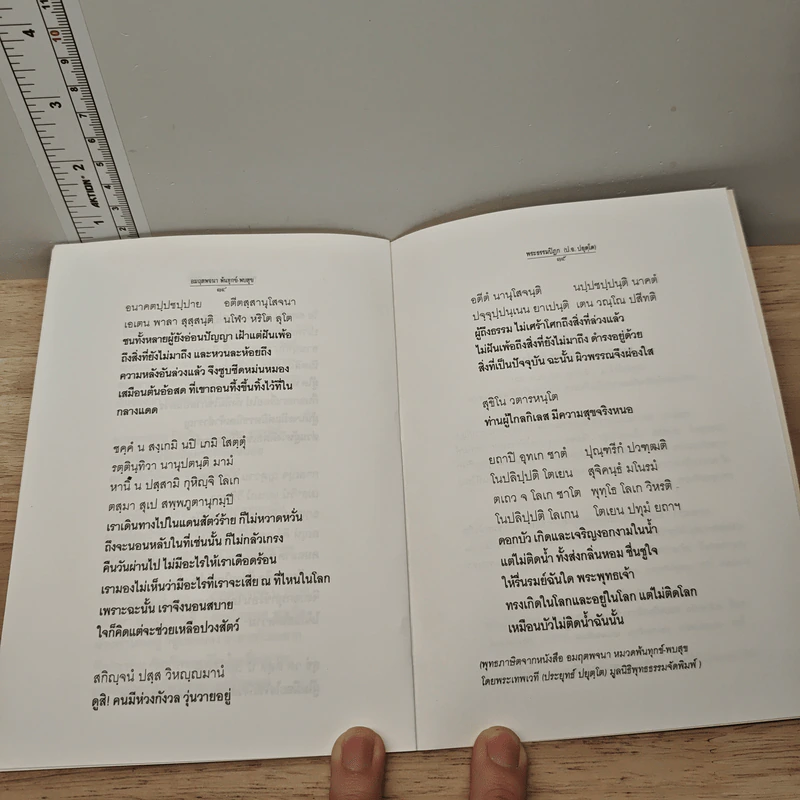 อมฤตพจนา พ้นทุกข์-พบสุข
อนาคตปฺปชปฺปาย อตีตสฺสานุโสจนา
เอเตน พาลา สุสฺสนฺติ นโฬว หริโต ลุโต
ชนทั้งหลายผู้ยังอ่อนปัญญา เฝ้าแต่ฝันเพ้อ
ถึงสิ่งที่ยังไม่มาถึง และหวนละห้อยถึง
ความหลังอันล่วงแล้ว จึงซูบซีดหม่นหมอง
เสมือนต้นอ้อสด ที่เขาถอนทึ้งขึ้นทิ้งไว้ที่ใน
กลางแดด
ชคฺคํ น สงฺเกมิ นปิ เภมิ โสตฺตุํ
รตฺตินฺทิวา นานุปตนฺติ มามํ
หานึ น ปสฺสามิ กุหิญฺจิ โลเก
ตสฺมา สุเป สพฺพภูตานุกมฺปี
เราเดินทางไปในแดนสัตว์ร้าย ก็ไม่หวาดหวั่น
ถึงจะนอนหลับในที่เช่นนั้น ก็ไม่กลัวเกรง
คืนวันผ่านไป ไม่มีอะไรให้เราเดือดร้อน
เรามองไม่เห็นว่ามีอะไรที่เราจะเสีย ณ ที่ไหนในโลก
เพราะฉะนั้น เราจึงนอนสบาย
ใจก็คิดแต่จะช่วยเหลือปวงสัตว์
สกิญฺจนํ ปสฺส วิหญฺญมานํ
ดูสิ! คนมีห่วงกังวล วุ่นวายอยู่
พระธรรมปิฎก (ป.อ. ปยุตฺโต)
อตีตํ นานุโสจนฺติ นปฺปชปฺปนฺติ นาคตํ
ปจฺจุปฺปนฺเนน ยาเปนฺติ เตน วณฺโณ ปสีทติ
ผู้ถึงธรรม ไม่เศร้าโศกถึงสิ่งที่ล่วงแล้ว
ไม่ฝันเพ้อถึงสิ่งที่ยังไม่มาถึง ดำรงอยู่ด้วย
สิ่งที่เป็นปัจจุบัน ฉะนั้น ผิวพรรณจึงผ่องใส
สุขิโน วตารหนฺโต
ท่านผู้ไกลกิเลส มีความสุขจริงหนอ
ยถาปิ อุทเก ชาตํ ปุณฺฑรีกํ ปวฑฺฒติ
โนปลิปฺปติ โตเยน สุจิคนฺธํ มโนรมํ
ตเถว จ โลเก ชาโต พุทฺโธ โลเก วิหรติ
โนปลิปฺปติ โลเกน โตเยน ปทุมํ ยถาฯ
ดอกบัว เกิดและเจริญงอกงามในน้ำ
แต่ไม่ติดน้ำ ทั้งส่งกลิ่นหอม ชื่นชูใจ
ให้รื่นรมย์ฉันใด พระพุทธเจ้า
ทรงเกิดในโลกและอยู่ในโลก แต่ไม่ติดโลก
เหมือนบัวไม่ติดน้ำฉันนั้น
(พุทธภาษิตจากหนังสือ อมฤตพจนา หมวดพ้นทุกข์-พบสุข
โดยพระเทพเวที (ประยุทธ์ ปยุตฺโต) มูลนิธิพุทธธรรมจัดพิมพ์ )
4
10
9
8
3
7
6
5
2
AKTION
4
3
1
2